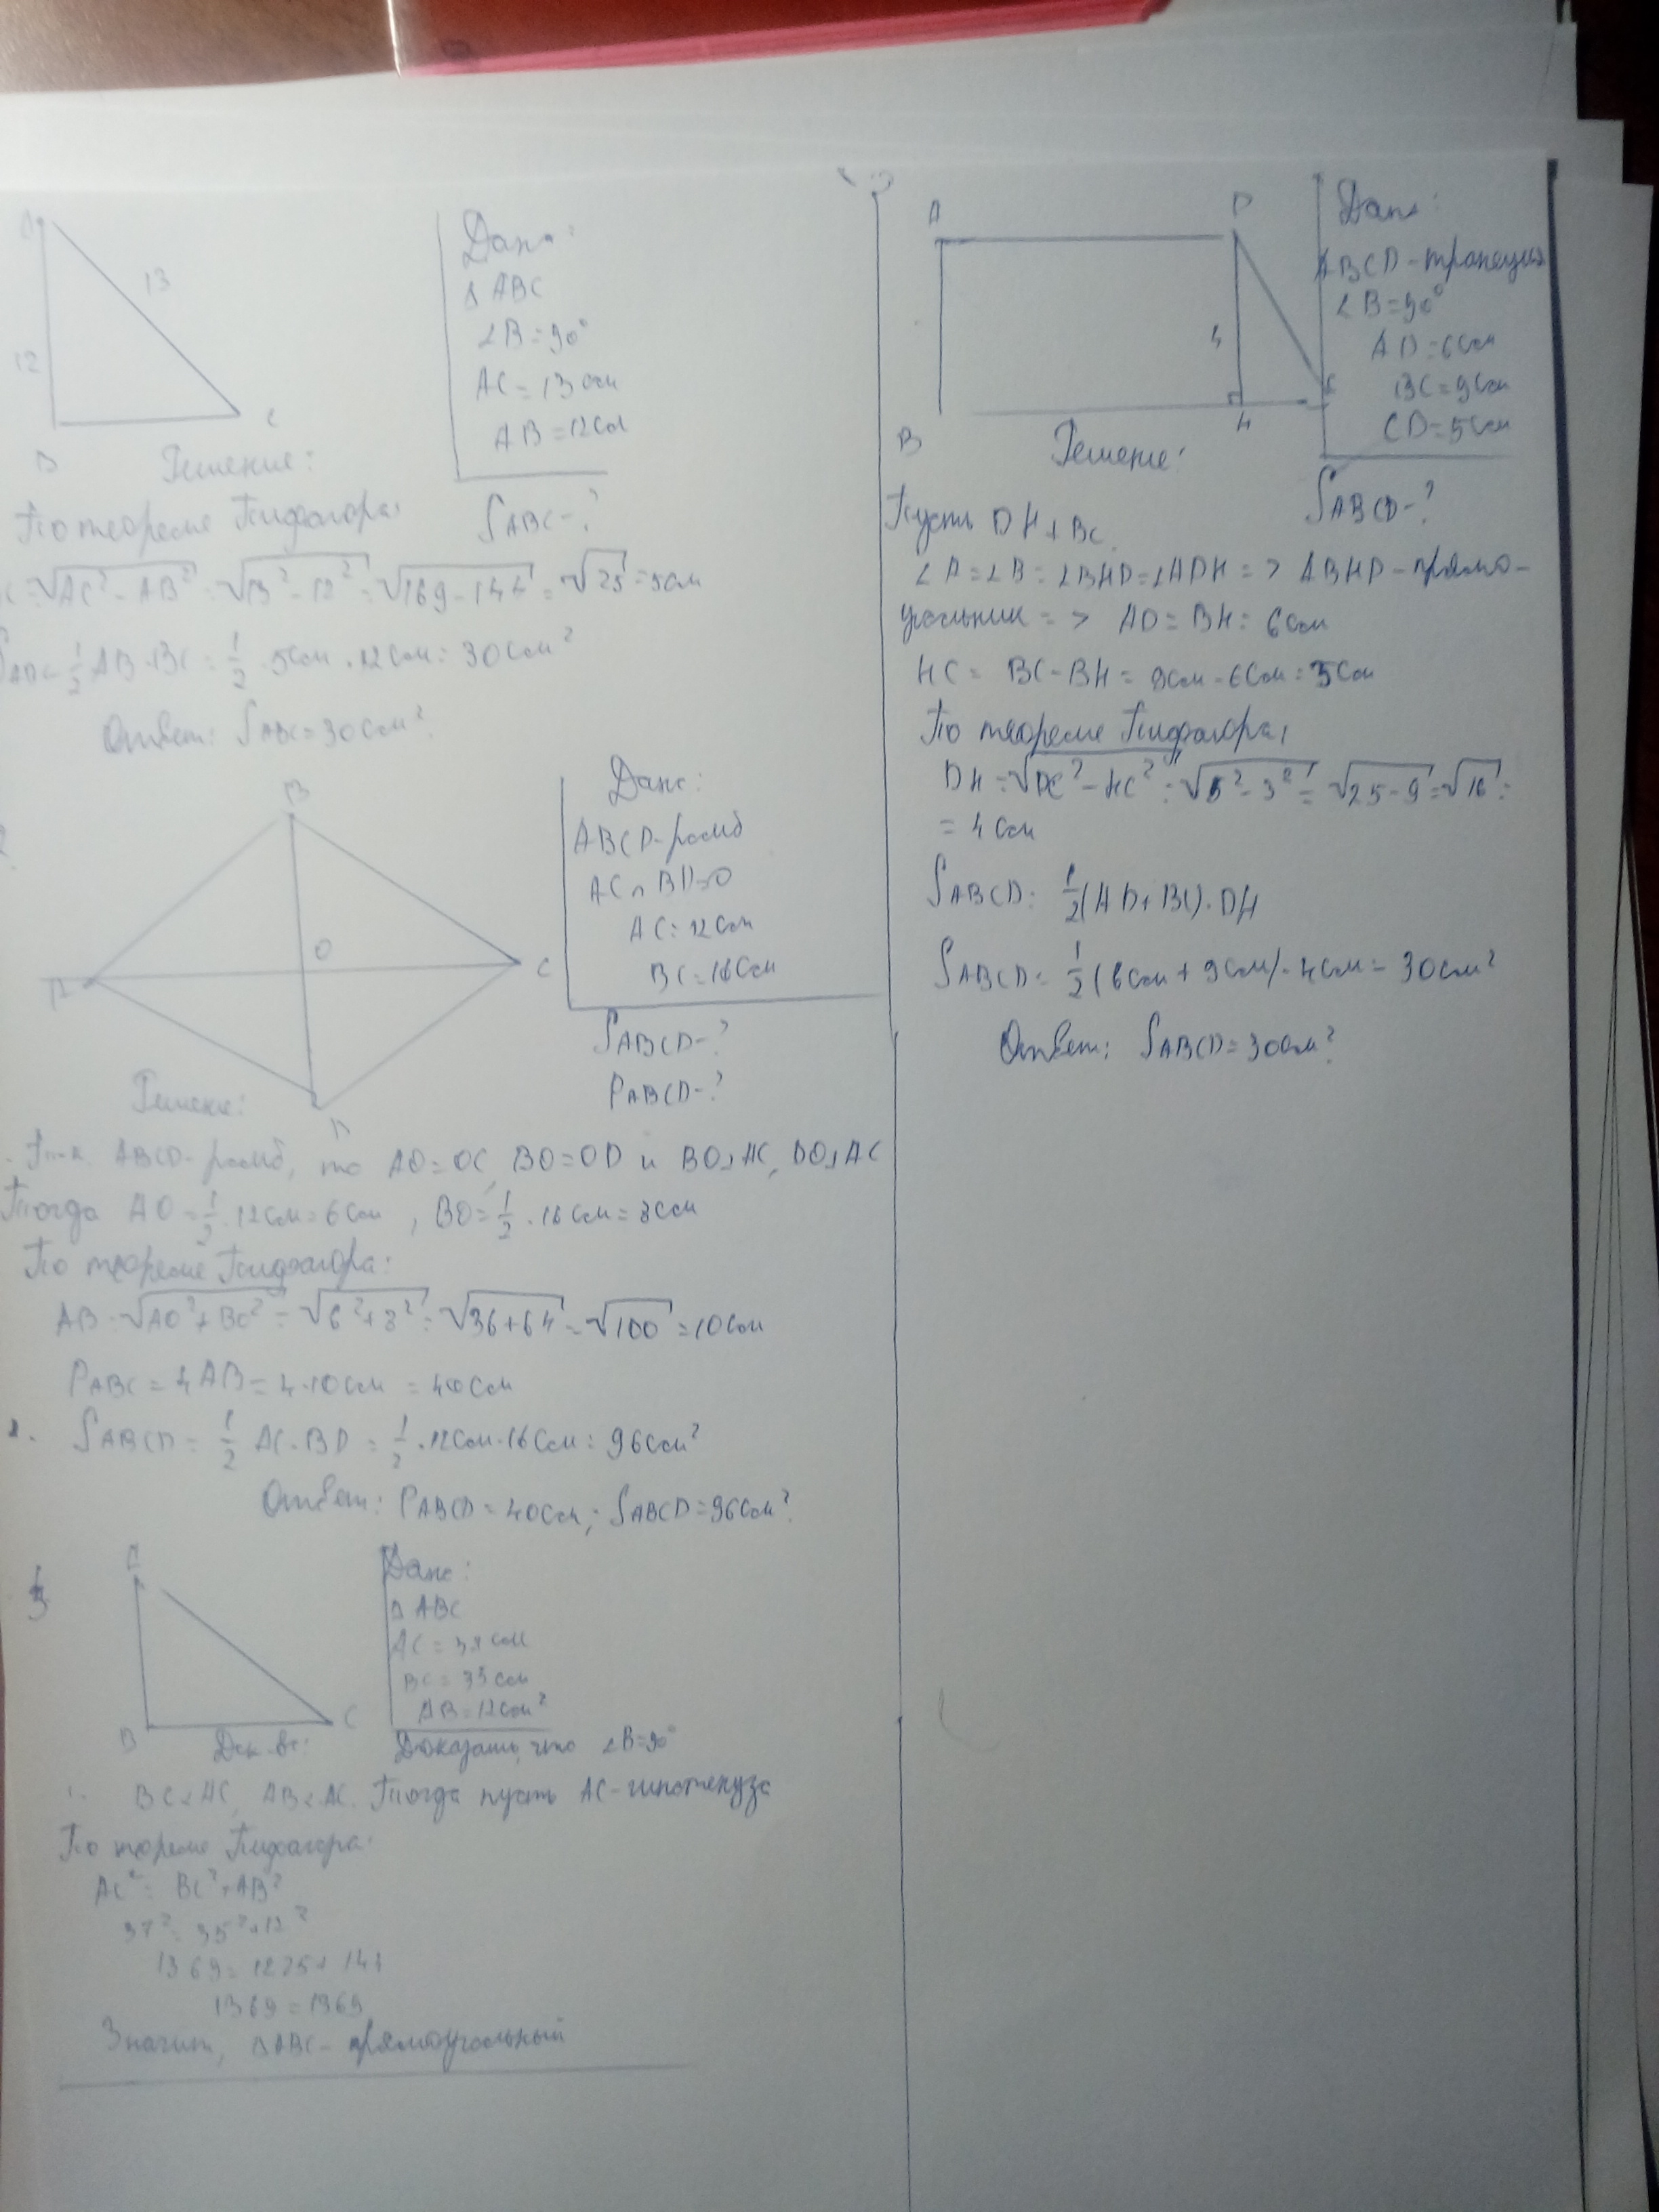 A
13
12
B
C
Дано:
Δ ABC
∠B = 90°
AC = 13 см
AB = 12 см
Решение:
S ABC - ?
По теореме Пифагора:
= √AC² - AB² = √13² - 12² = √169 - 144 = √25 = 5 см
½ AB · BC = ½ · 5 см · 12 см = 30 см²
Ответ: S ABC = 30 см²
B
O
C
Дано:
ABCD - ромб
AC ∩ BD = O
AC = 12 см
BC = 16 см
S ABCD - ?
P ABCD - ?
Решение:
D
Т.к. ABCD - ромб, то AO = OC, BO = OD и BO ⊥ AC, DO ⊥ AC
Тогда AO = ½ · 12 см = 6 см, BO = ½ · 16 см = 8 см
По теореме Пифагора:
AB = √AO² + BO² = √6² + 8² = √36 + 64 = √100 = 10 см
P ABC = 4 AB = 4 · 10 см = 40 см
2. S ABCD = ½ AC · BD = ½ · 12 см · 16 см = 96 см²
Ответ: P ABCD = 40 см; S ABCD = 96 см²
3
B
C
Док-во:
Дано:
Δ ABC
BC = 35 см
AB = 12 см²
Доказать, что ∠B = 90°
1. BC < AC, AB < AC. Тогда пусть AC - гипотенуза
По теореме Пифагора:
AC² = BC² + AB²
37² = 35² + 12²
1369 = 1225 + 144
1369 = 1369
Значит, Δ ABC - прямоугольный
A
D
4
B
H
C
Дано:
ABCD - трапеция
∠B = 90°
AD = 6 см
BC = 9 см
CD = 5 см
Решение:
S ABCD - ?
Пусть DH ⊥ BC
∠A = ∠B = ∠BHD = ∠ADH => ABHD - прямо-
угольник => AD = BH = 6 см
HC = BC - BH = 9 см - 6 см = 3 см
По теореме Пифагора:
DH = √DC² - HC² = √5² - 3² = √25 - 9 = √16 =
= 4 см
S ABCD = ½ (AD + BC) · DH
S ABCD = ½ (6 см + 9 см) · 4 см = 30 см²
Ответ: S ABCD = 30 см²